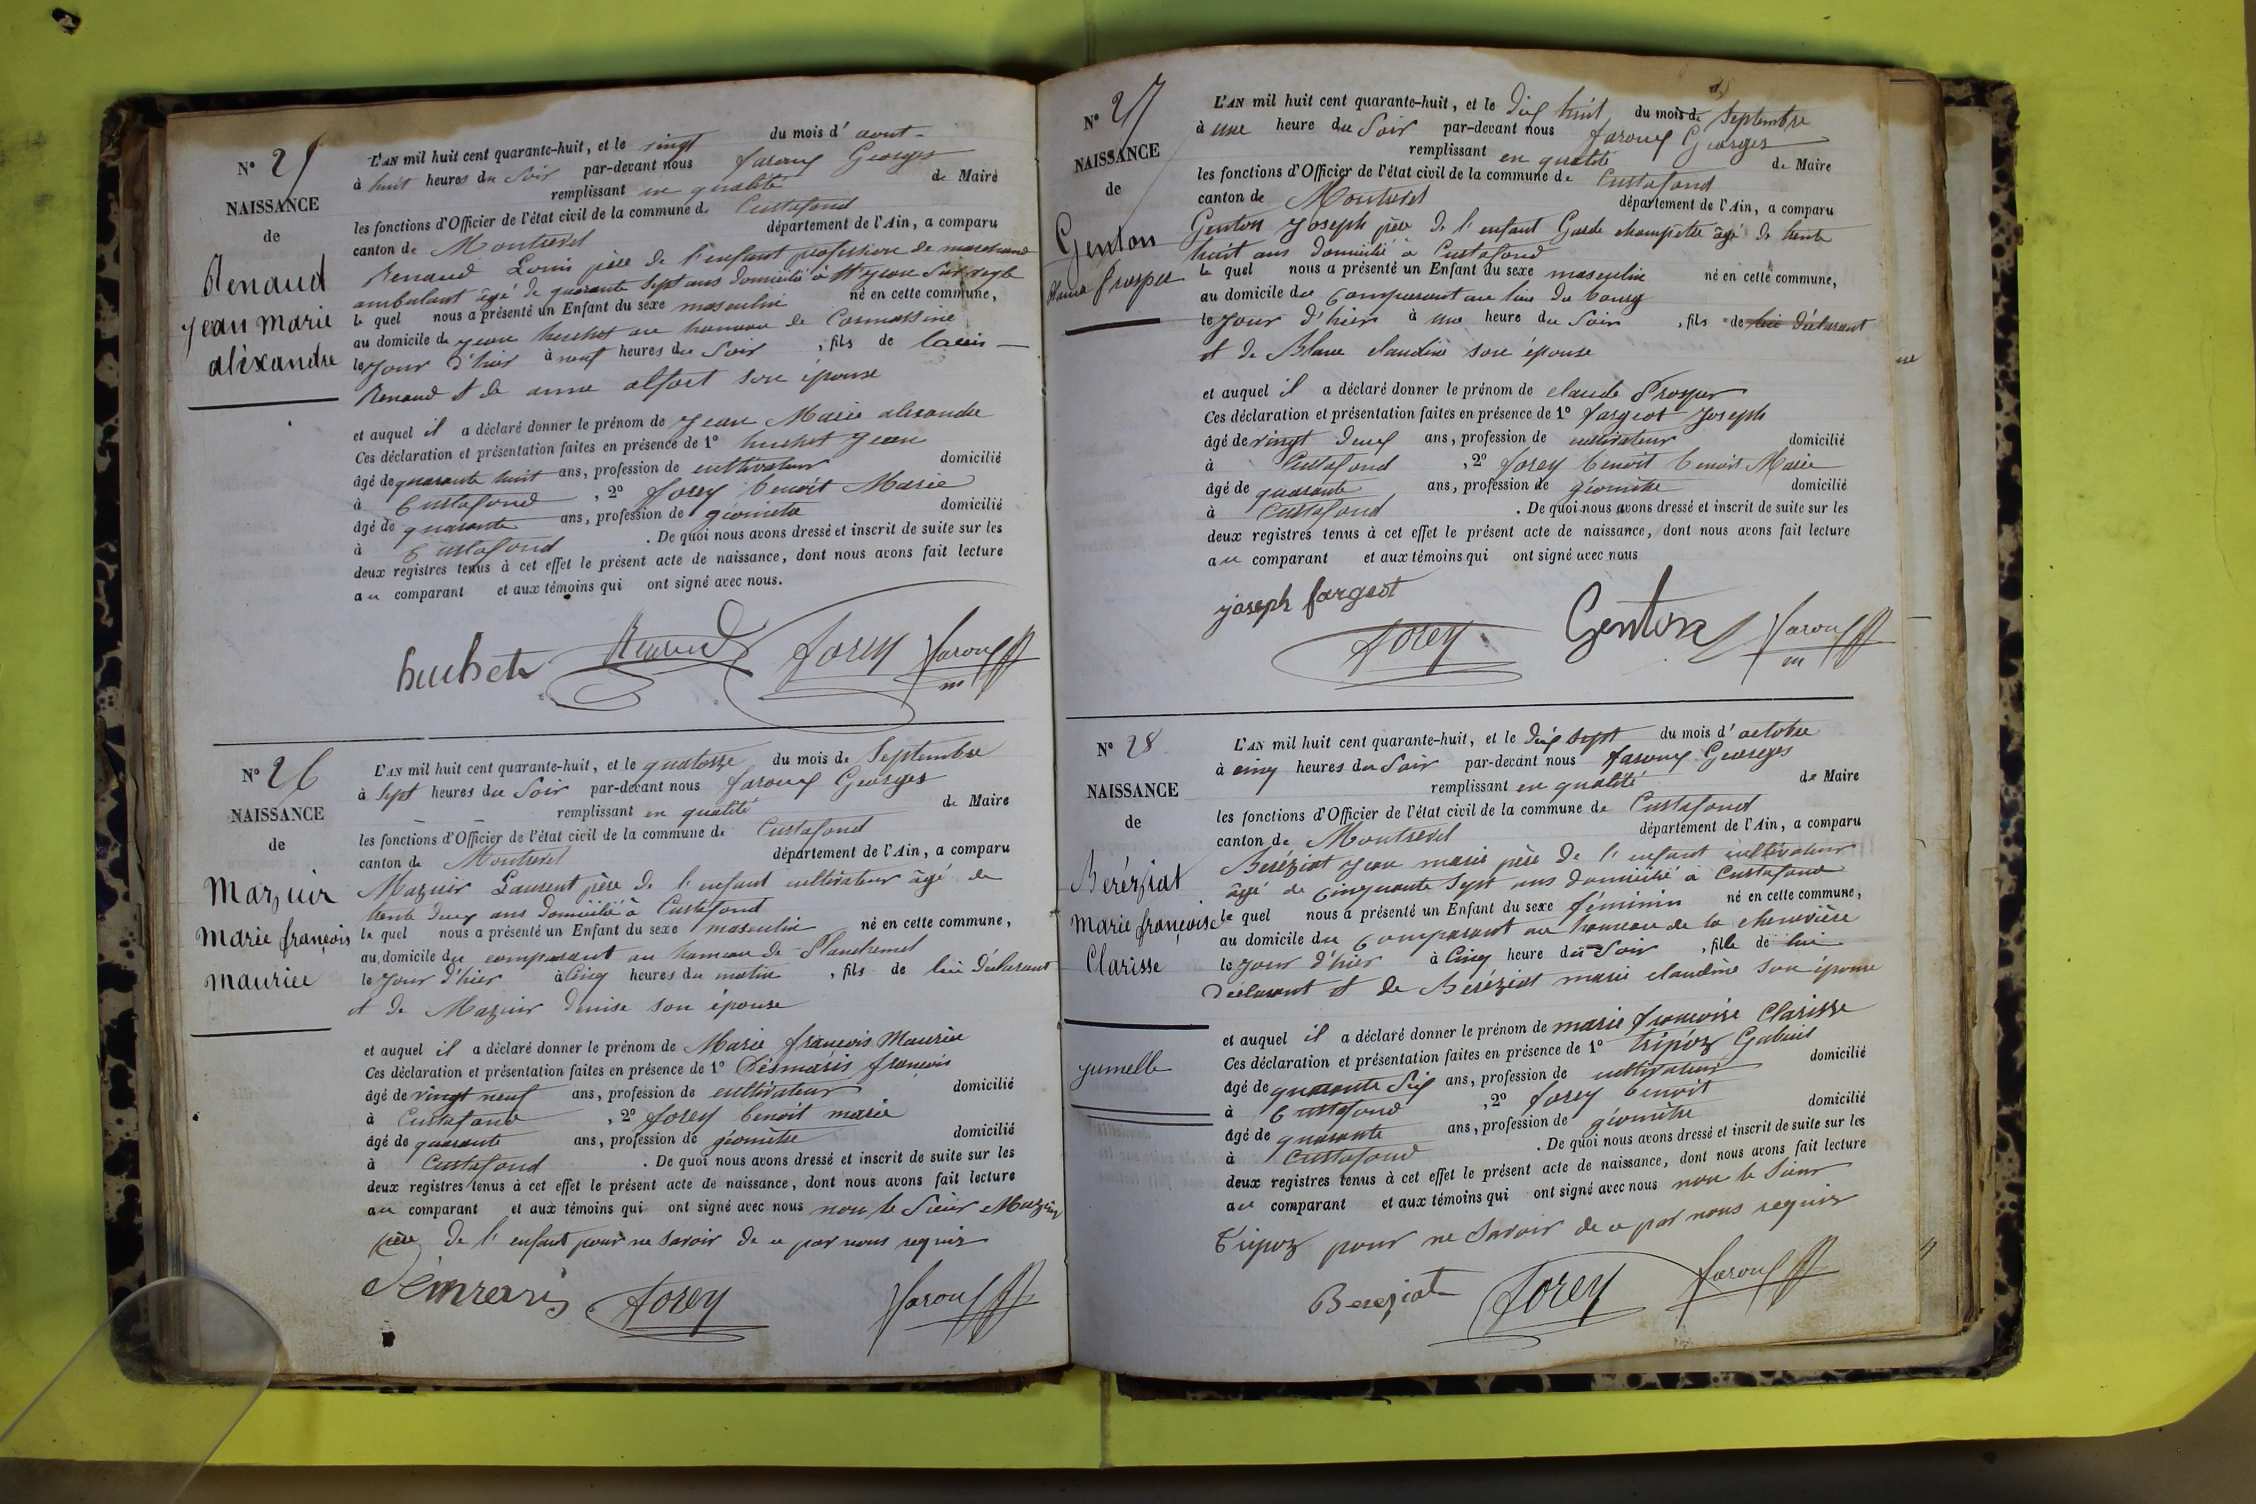 N° 25
NAISSANCE
de
Renaud
jean marie
alèxandre
L'AN mil huit cent quarante-huit, et le vingt du mois d' aout
à huit heures du Soir par-devant nous faroux Georges
remplissant en qualité de Maire
les fonctions d'Officier de l'état civil de la commune de Curtafond
canton de Montrevel département de l'Ain, a comparu
Renaud Louis père de l'enfant profession de marchand
ambulant âgé de quarante Sept ans domicilié à St jean Sur
le quel nous a présenté un Enfant du sexe masculin né en cette commune,
au domicile de jean huchet au hameau de
le jour d'hier à neuf heures du Soir , fils de Louis
Renaud et de anne son épouse
et auquel il a déclaré donner le prénom de jean Marie alexandre
Ces déclaration et présentation faites en présence de 1° huchet jean
âgé de quarante huit ans, profession de cultivateur domicilié
à Curtafond , 2° forey benoit Marie
âgé de quarante ans, profession de géomètre domicilié
à Curtafond . De quoi nous avons dressé et inscrit de suite sur les
deux registres tenus à cet effet le présent acte de naissance, dont nous avons fait lecture
au comparant et aux témoins qui ont signé avec nous.
huchet Renaud forey faroux
m
N° 26
NAISSANCE
de
Mazuir
Marie françois
maurice
L'AN mil huit cent quarante-huit, et le quatorze du mois de Septembre
à Sept heures du Soir par-devant nous faroux Georges
remplissant en qualité de Maire
les fonctions d'Officier de l'état civil de la commune de Curtafond
canton de Montrevel département de l'Ain, a comparu
Mazuir Laurent père de l'enfant cultivateur âgé de
trente deux ans domicilié à Curtafond
le quel nous a présenté un Enfant du sexe masculin né en cette commune,
au domicile du comparant au hameau de
le jour d'hier à Cinq heures du matin , fils de lui déclarant
et de Mazuir denise son épouse
et auquel il a déclaré donner le prénom de Marie françois Maurice
Ces déclaration et présentation faites en présence de 1° Désmaris françois
âgé de vingt neuf ans, profession de cultivateur domicilié
à Curtafond , 2° forey benoit marie
âgé de quarante ans, profession de géomètre domicilié
à Curtafond . De quoi nous avons dressé et inscrit de suite sur les
deux registres tenus à cet effet le présent acte de naissance, dont nous avons fait lecture
au comparant et aux témoins qui ont signé avec nous non le Sieur Mazuir
père de l'enfant pour ne savoir de ce par nous requis
forey faroux
N° 27
NAISSANCE
de
Genton
Claude Prosper
L'AN mil huit cent quarante-huit, et le dix huit du mois de Septembre
à une heure du Soir par-devant nous faroux Georges
remplissant en qualité de Maire
les fonctions d'Officier de l'état civil de la commune de Curtafond
canton de Montrevel département de l'Ain, a comparu
Genton joseph père de l'enfant Garde champetre âgé de trente
huit ans domicilié à Curtafond
le quel nous a présenté un Enfant du sexe masculin né en cette commune,
au domicile du comparant au lieu du bourg
le jour d'hier à une heure du Soir , fils de lui déclarant
et de Blanc claudine son épouse
et auquel il a déclaré donner le prénom de claude Prosper
Ces déclaration et présentation faites en présence de 1° fargeot joseph
âgé de vingt deux ans, profession de cultivateur domicilié
à Curtafond , 2° forey benoit benoit Marie
âgé de quarante ans, profession de géomètre domicilié
à Curtafond . De quoi nous avons dressé et inscrit de suite sur les
deux registres tenus à cet effet le présent acte de naissance, dont nous avons fait lecture
au comparant et aux témoins qui ont signé avec nous
joseph fargeot
forey Genton faroux
m
N° 28
NAISSANCE
de
Beréziat
marie françoise
Clarisse
jumelle
L'AN mil huit cent quarante-huit, et le dix sept du mois d' octobre
à cinq heures du Soir par-devant nous faroux Georges
remplissant en qualité de Maire
les fonctions d'Officier de l'état civil de la commune de Curtafond
canton de Montrevel département de l'Ain, a comparu
Beréziat jean marie père de l'enfant cultivateur
âgé de cinquante Sept ans domicilié à Curtafond
le quel nous a présenté un Enfant du sexe féminin né en cette commune,
au domicile du comparant au hameau de la chenevière
le jour d'hier à Cinq heure du Soir , fille de lui
déclarant et de Béréziat marie claudine son épouse
et auquel il a déclaré donner le prénom de marie françoise Clarisse
Ces déclaration et présentation faites en présence de 1° tripoz Gabriel
âgé de quarante Six ans, profession de cultivateur domicilié
à Curtafond , 2° forey benoit
âgé de quarante ans, profession de géomètre domicilié
à Curtafond . De quoi nous avons dressé et inscrit de suite sur les
deux registres tenus à cet effet le présent acte de naissance, dont nous avons fait lecture
au comparant et aux témoins qui ont signé avec nous non le Sieur
Tripoz pour ne Savoir de ce par nous requis
Bereziat forey faroux